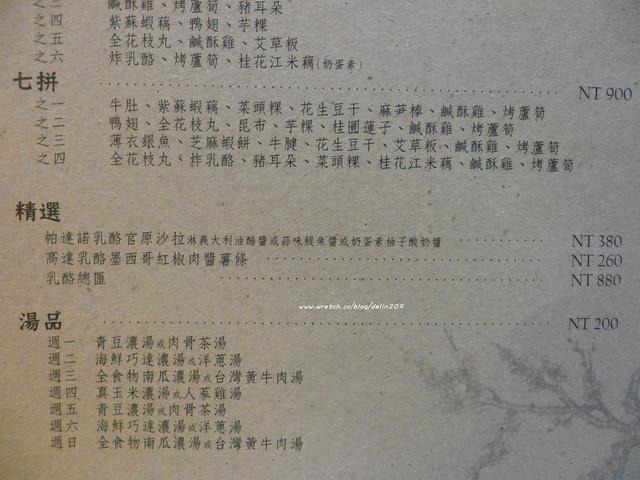 之三 鹹酥雞、烤蘆筍、豬耳朵
之四 紫蘇蝦藕、鴨翅、芋粿
之五 全花枝丸、鹹酥雞、艾草板
之六 炸乳酪、烤蘆筍、桂花江米藕(奶蛋素)
七拼 NT 900
之一 牛肚、紫蘇蝦藕、菜頭粿、花生豆干、麻笋棒、鹹酥雞、烤蘆筍
之二 鴨翅、全花枝丸、昆布、芋粿、桂圓蓮子、鹹酥雞、烤蘆筍
之三 薄衣銀魚、芝麻蝦餅、牛腱、花生豆干、艾草板、鹹酥雞、烤蘆筍
之四 全花枝丸、炸乳酪、豬耳朵、菜頭粿、桂花江米藕、鹹酥雞、烤蘆筍
精選
帕達諾乳酪宮原沙拉淋義大利油醋醬或蒜味鯷魚醬或奶蛋素柚子酸奶醬 NT 380
高達乳酪墨西哥紅椒肉醬薯條 NT 260
乳酪總匯 NT 880
www.wretch.cc/blog/delin209
湯品 NT 200
週一 青豆濃湯或肉骨茶湯
週二 海鮮巧達濃湯或洋蔥湯
週三 全食物南瓜濃湯或台灣黃牛肉湯
週四 真玉米濃湯或人蔘雞湯
週五 青豆濃湯或肉骨茶湯
週六 海鮮巧達濃湯或洋蔥湯
週日 全食物南瓜濃湯或台灣黃牛肉湯